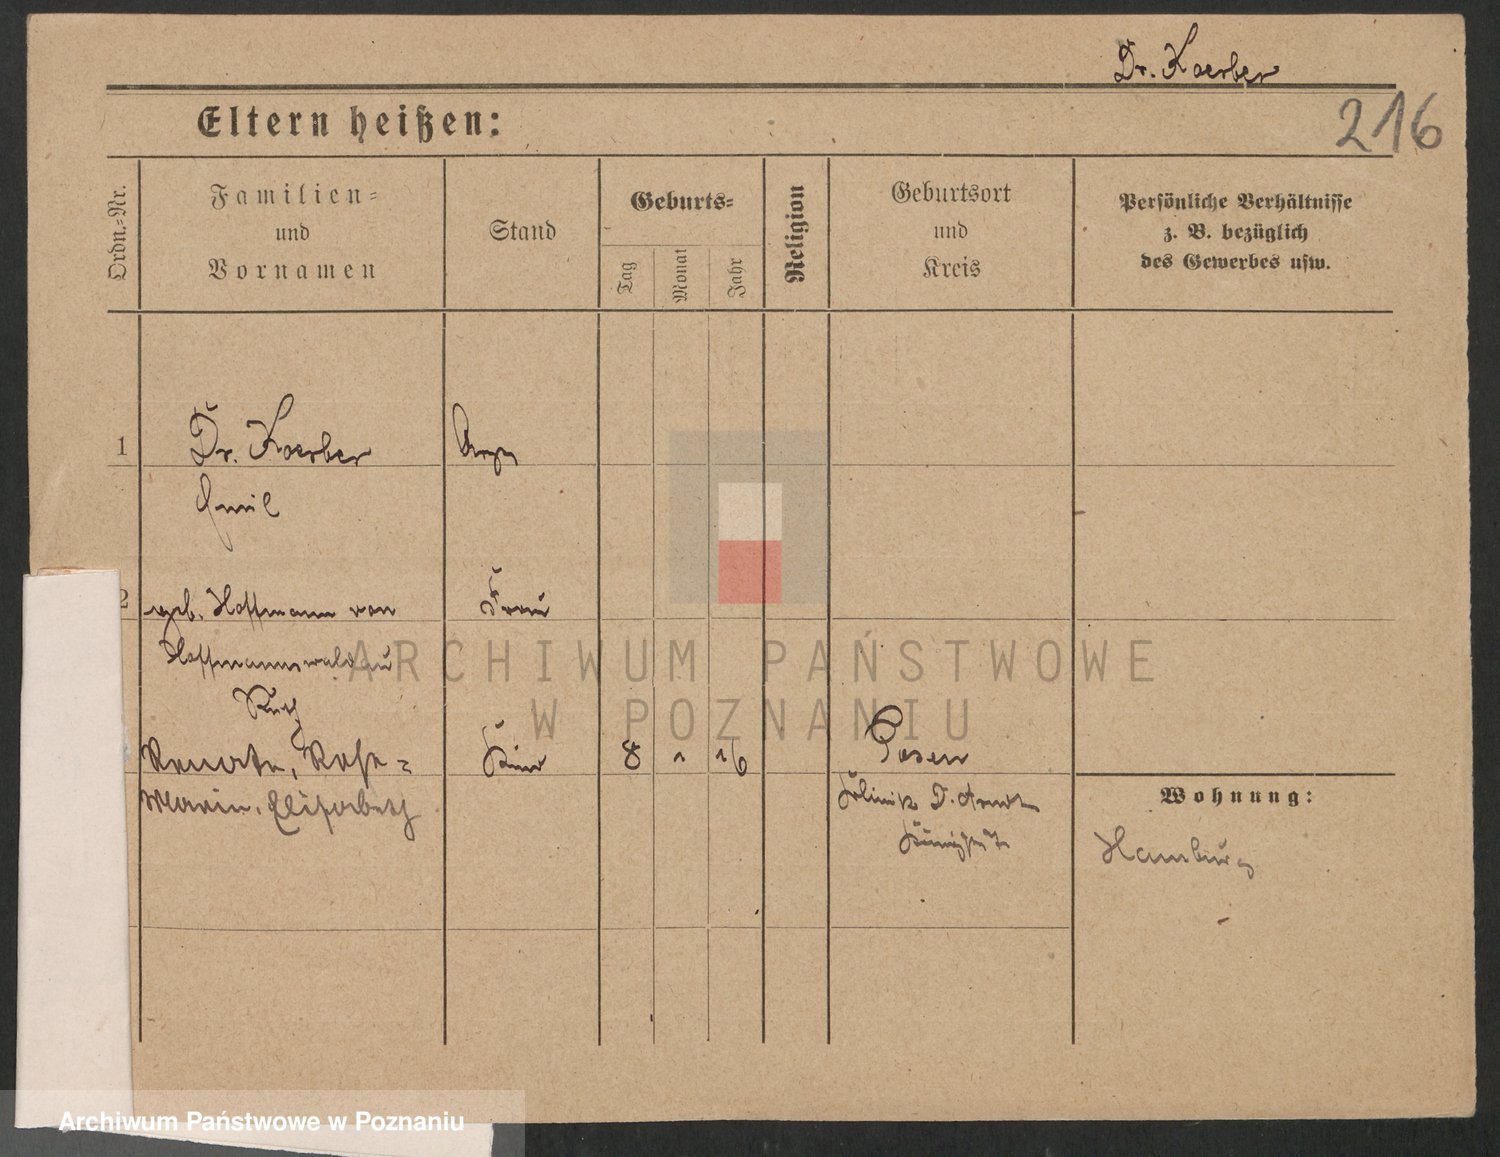 Dr. Koerber
216
Eltern heißen:
Ordn.-Nr.
Familien-
und
Vornamen
Stand
Geburts-
Tag
Monat
Jahr
Religion
Geburtsort
und
Kreis
Persönliche Verhältnisse
z. B. bezüglich
des Gewerbes usw.
1 Dr. Koerber Arzt
Emil
2 geb. Hoffmann von Frau
Hoffmannswaldau
Ruth
Renate, Rose- Kind 8 1 16 Posen
Marie, Elisabeth
Klinik D.
Wohnung:
Hamburg
ARCHIWUM PAŃSTWOWE
W POZNANIU
Archiwum Państwowe w Poznaniu